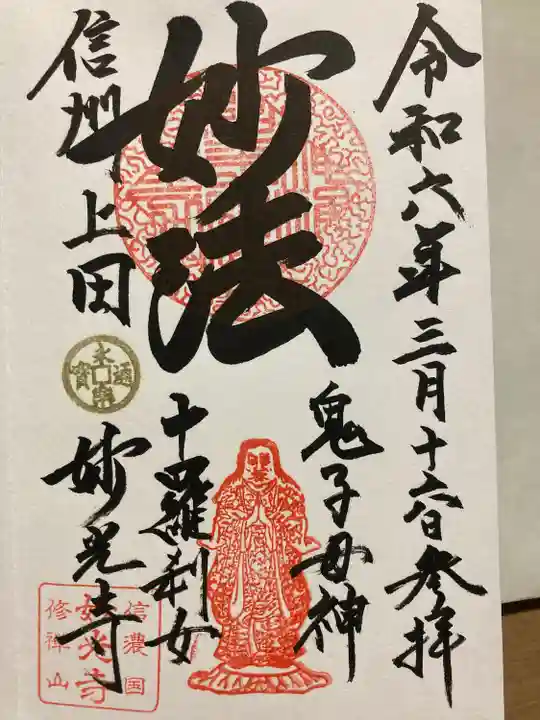 令和六年三月十六日参拝
鬼子母神
妙法
十羅刹女
信州上田
妙光寺
信濃国
妙光寺
修禅山